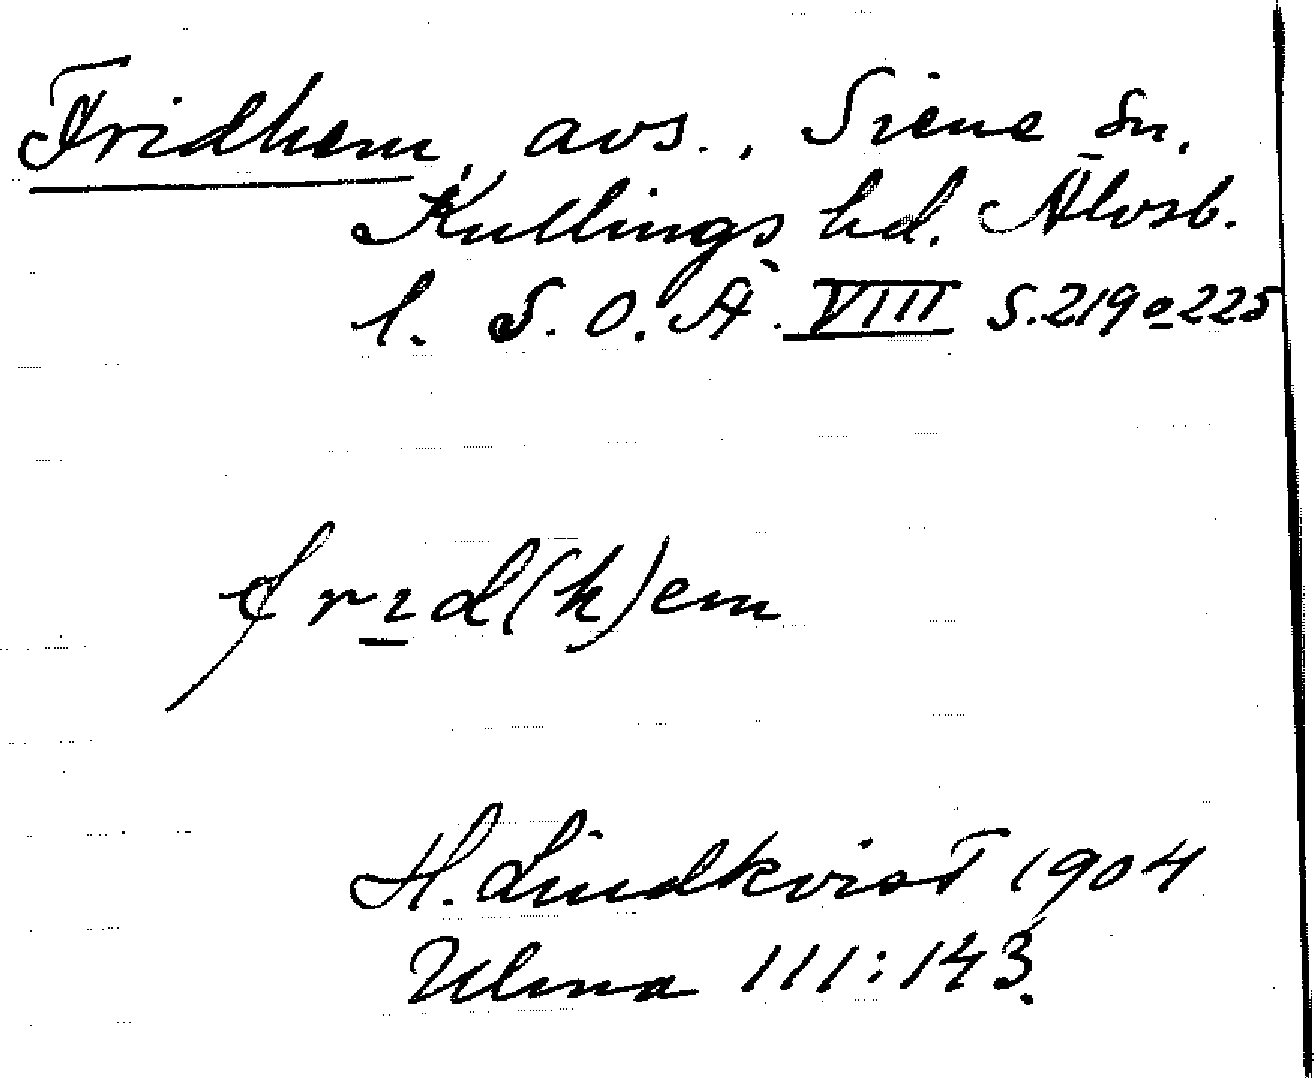 Fridhem, avs., Siene sn,
Kullings hd. Älvsb.
l. S.O.Ä. VIII S. 219 o 225
frɪd(h)em
H. Lindkvist 1904
Ulma 111:143.